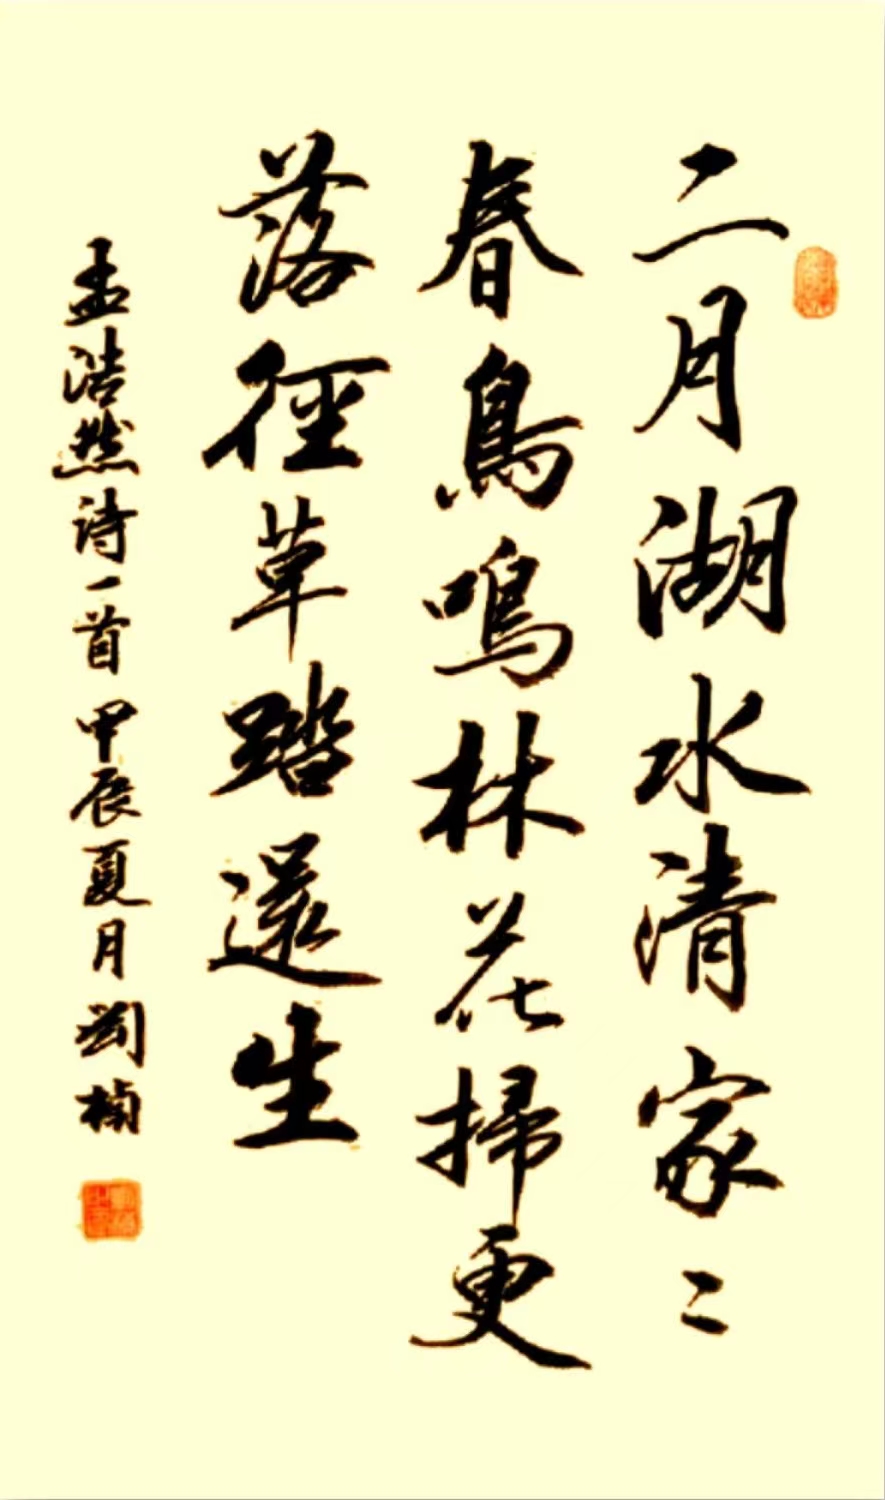 二月湖水清家〻
春鳥鳴林花掃更
落徑草踏還生
孟浩然诗一首甲辰夏月劉楠